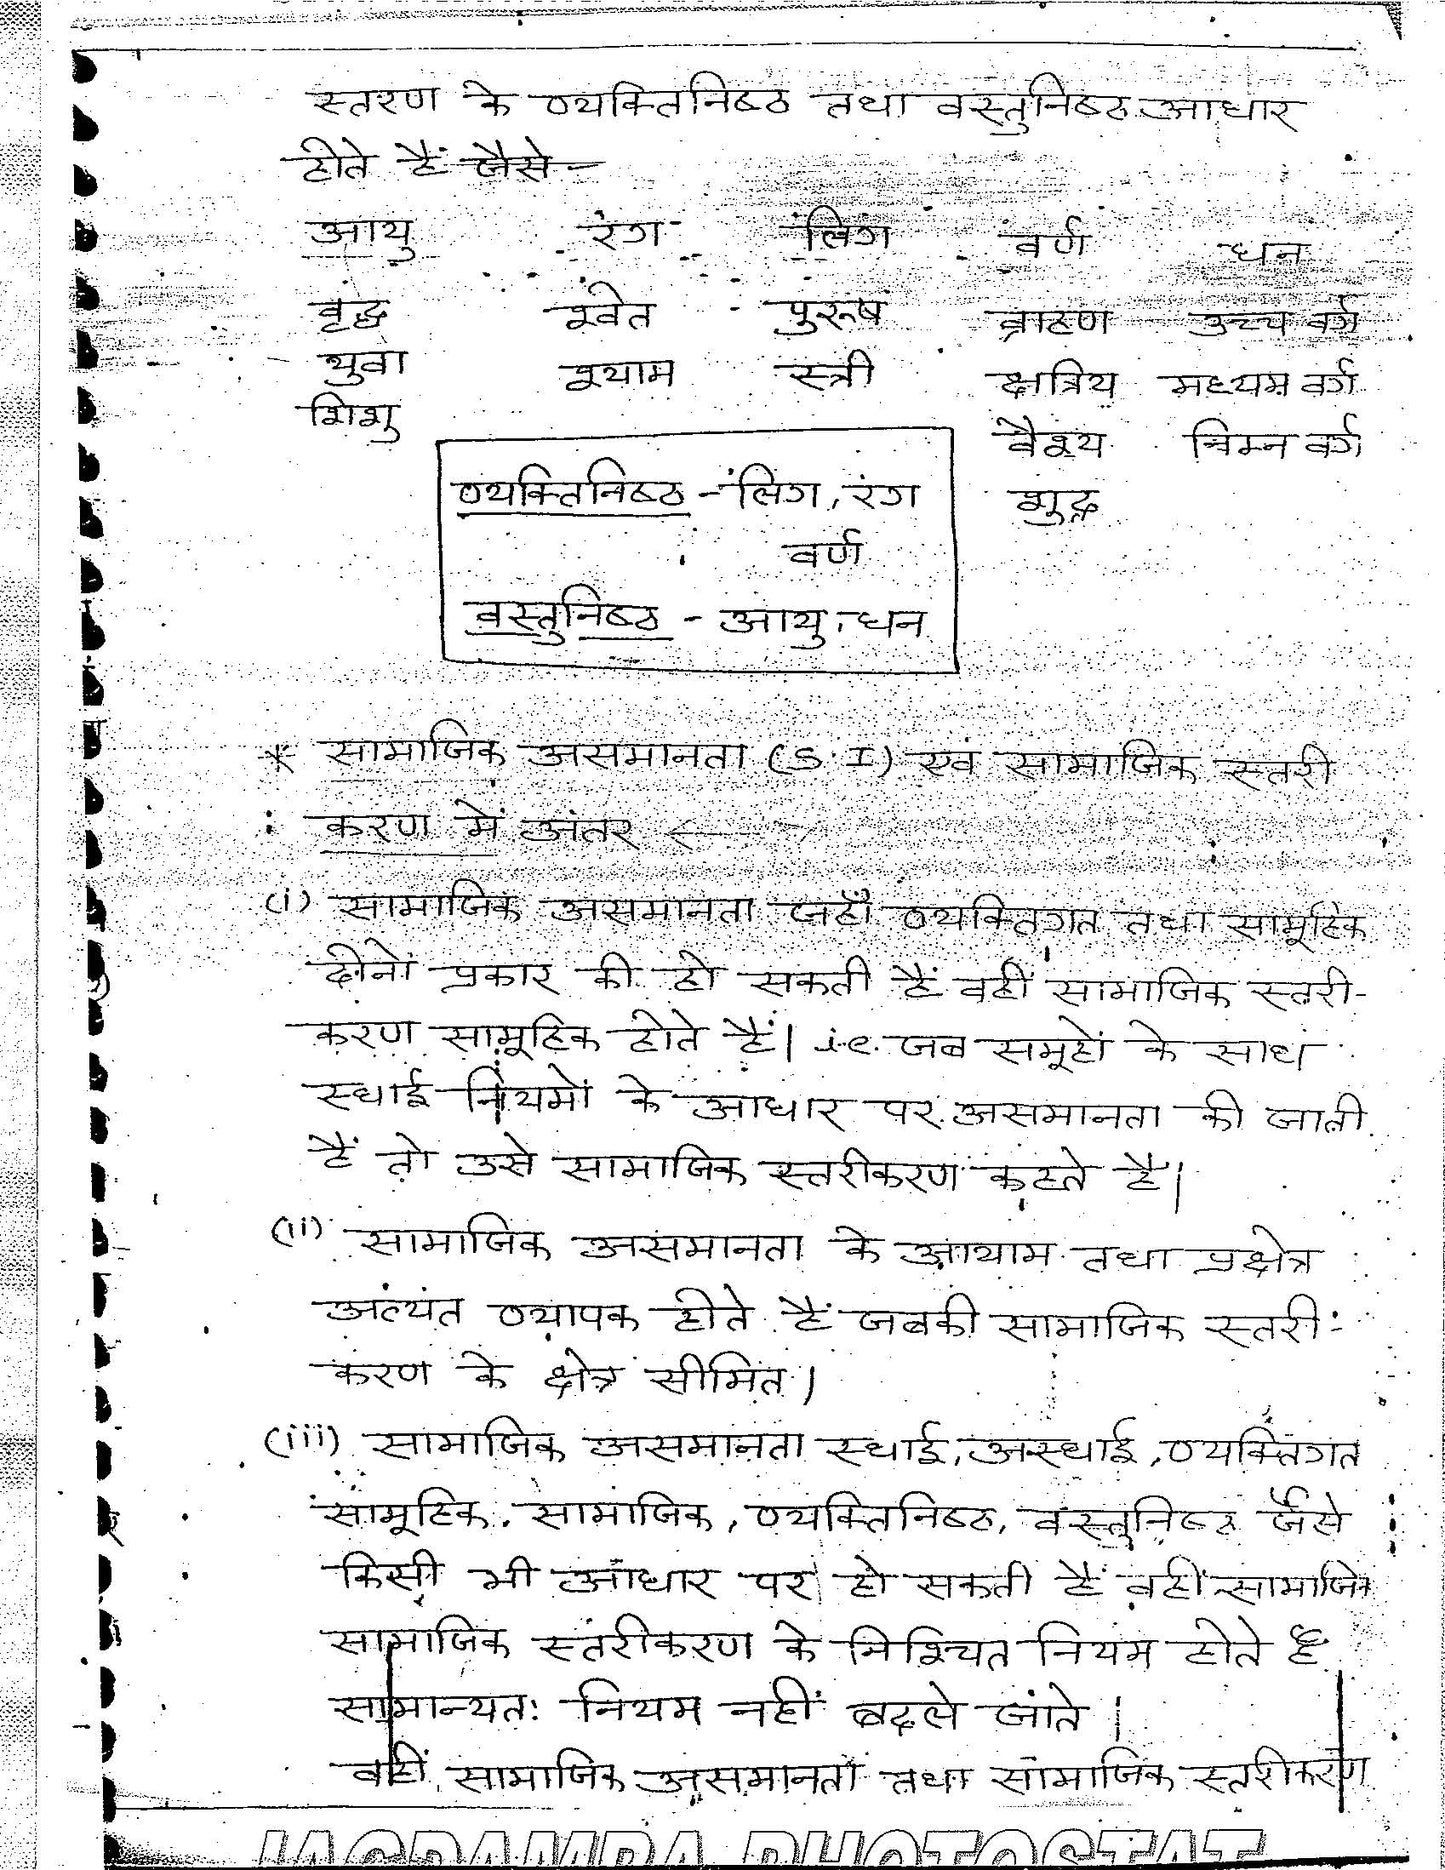 स्तरण के व्यक्तिनिष्ठ तथा वस्तुनिष्ठ आधार
होते हैं जैसे —
आयु रंग लिंग वर्ण धन
वृद्ध श्वेत पुरूष ब्राह्मण उच्च वर्ग
युवा श्याम स्त्री क्षत्रिय मध्यम वर्ग
शिशु वैश्य निम्न वर्ग
शुद्र
व्यक्तिनिष्ठ - लिंग, रंग
वर्ण
वस्तुनिष्ठ - आयु, धन
* सामाजिक असमानता (S.I) एवं सामाजिक स्तरी
करण में अंतर ←
(i) सामाजिक असमानता जहाँ व्यक्तिगत तथा सामूहिक
दोनों प्रकार की हो सकती हैं वहीं सामाजिक स्तरी-
करण सामूहिक होते हैं। i.e. जब समूहों के साथ
स्थाई नियमों के आधार पर असमानता की जाती
हैं तो उसे सामाजिक स्तरीकरण कहते है।
(ii) सामाजिक असमानता के आयाम तथा प्रक्षेत्र
अत्यंत व्यापक होते हैं जबकी सामाजिक स्तरी-
करण के क्षेत्र सीमित।
(iii) सामाजिक असमानता स्थाई, अस्थाई, व्यक्तिगत
सामूहिक, सामाजिक, व्यक्तिनिष्ठ, वस्तुनिष्ठ जैसे
किसी भी आधार पर हो सकती हैं वहीं सामाजिक
सामाजिक स्तरीकरण के निश्चित नियम होते हैं
सामान्यत: नियम नहीं बदले जाते।
वहीं सामाजिक असमानता तथा सामाजिक स्तरीकरण
JAGDAMBA PHOTOSTAT